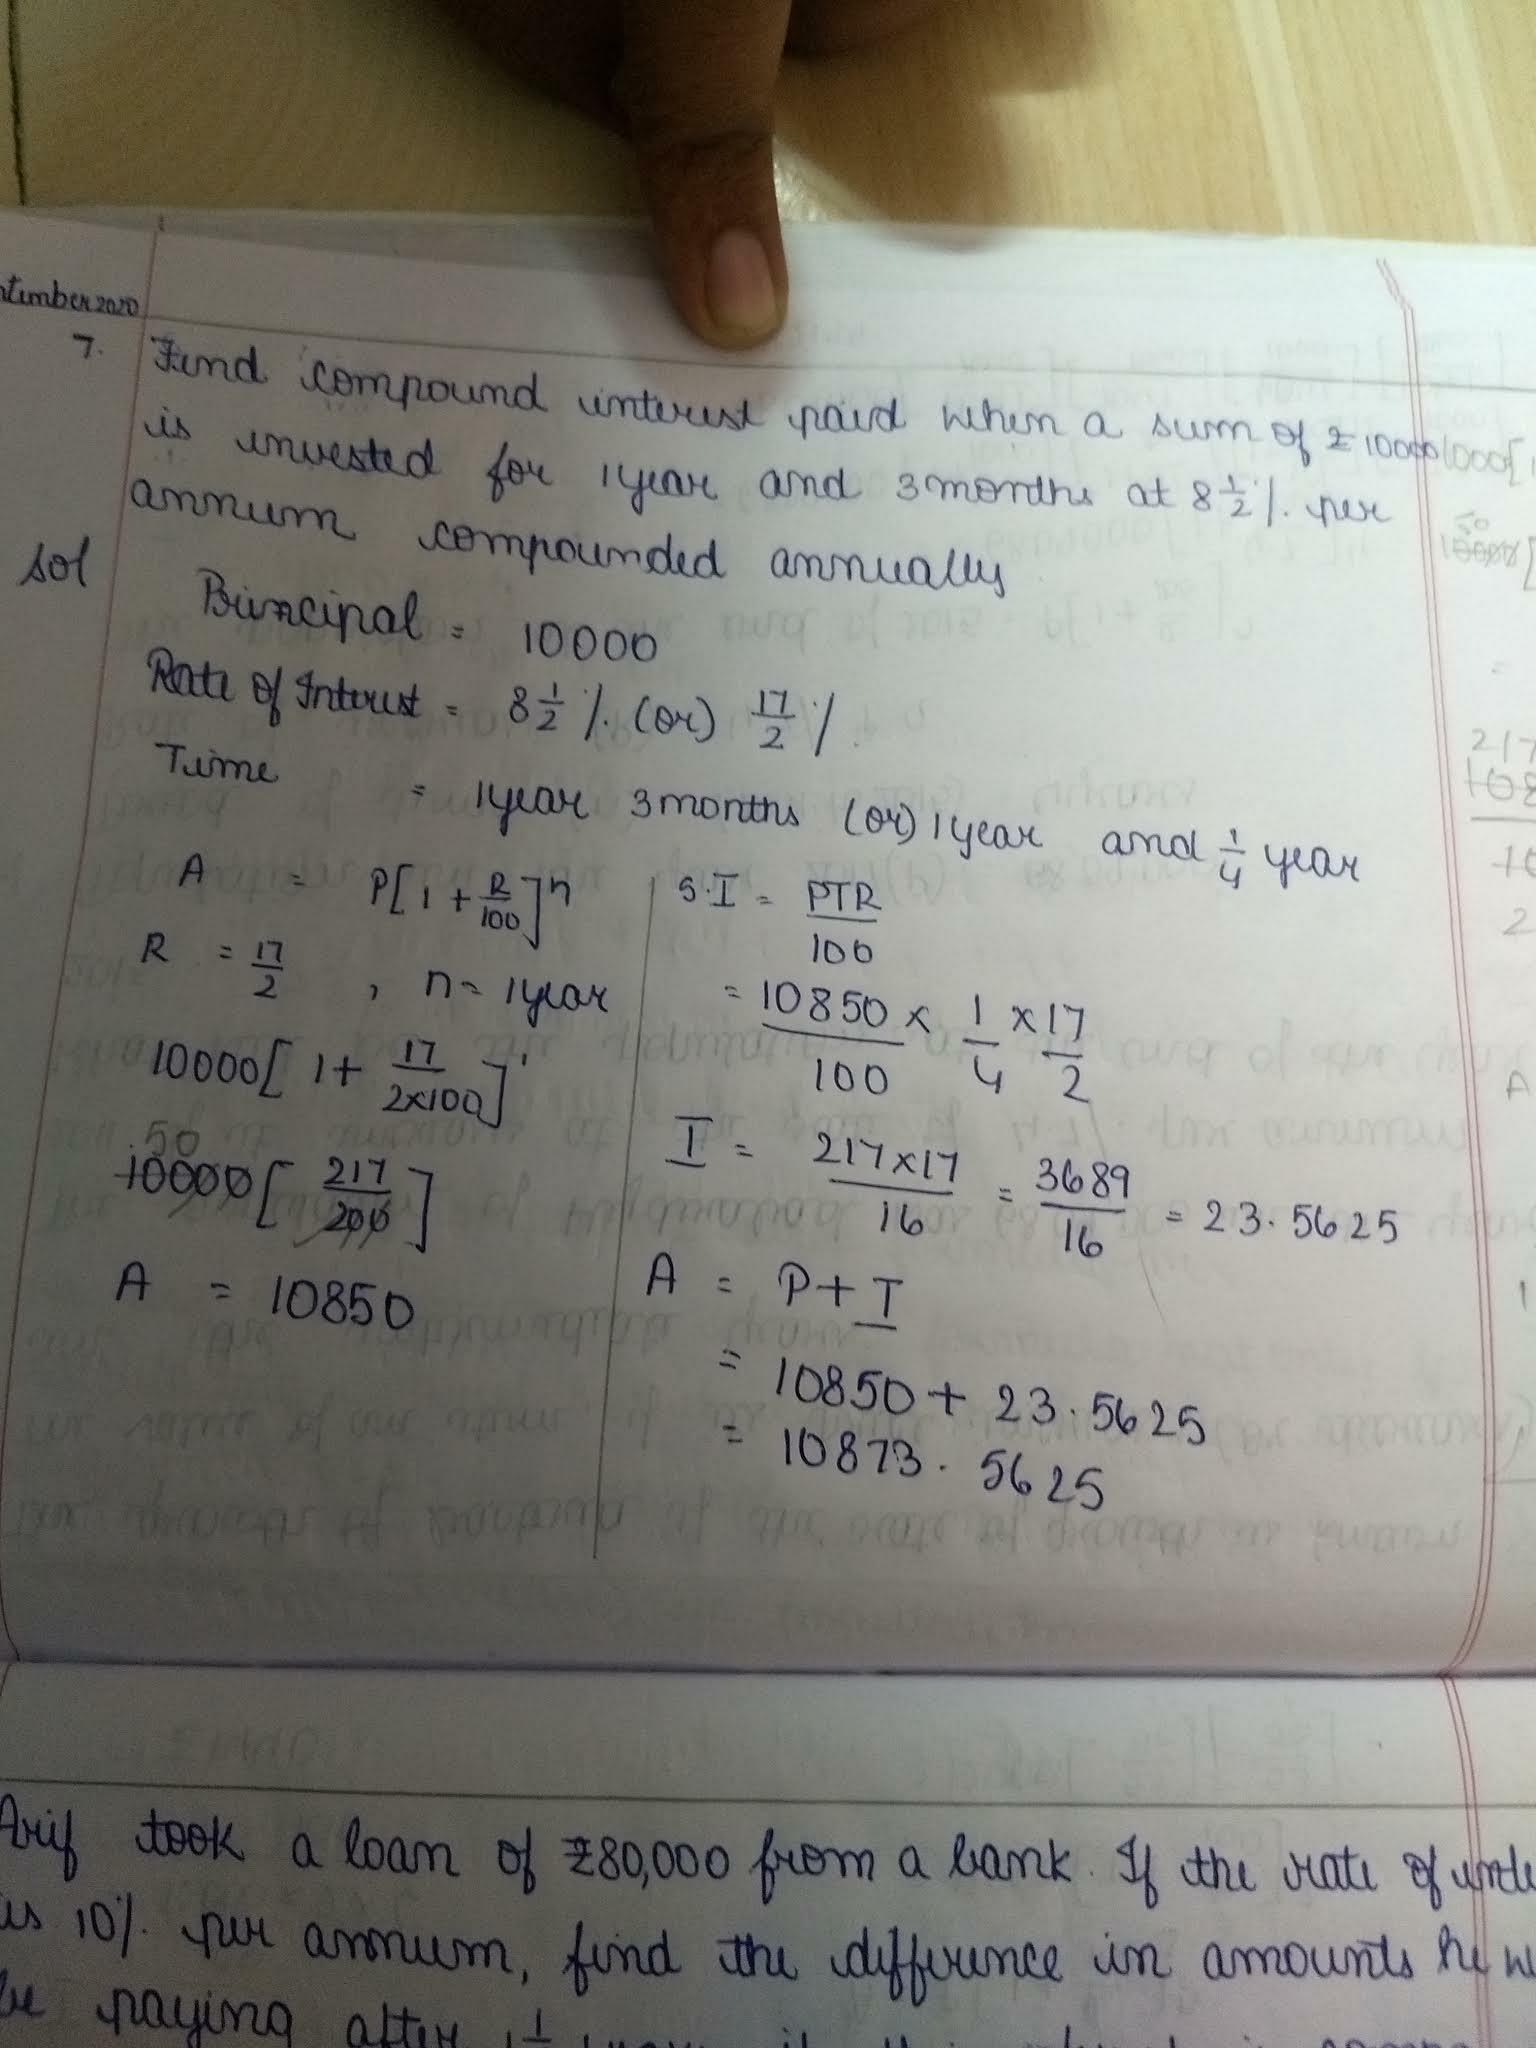 7. Find compound interest paid when a sum of ₹10000
is invested for 1year and 3months at 8 1/2 %. per
annum compounded annually
Sol
Principal = 10000
Rate of Interest = 8 1/2 %. (or) 17/2 %
Time = 1year 3months (or) 1year and 1/4 year
A = P[1 + R/100]^n
R = 17/2 , n = 1year
10000[1 + 17/2×100]^1
50
10000[217/200]
A = 10850
S.I = PTR/100
= 10850/100 × 1/4 × 17/2
I = 217×17/16 = 3689/16 = 23.5625
A = P+I
= 10850 + 23.5625
= 10873.5625
Arif took a loan of ₹80,000 from a bank. If the rate of
is 10%. per annum, find the difference in amounts he
paying after 1